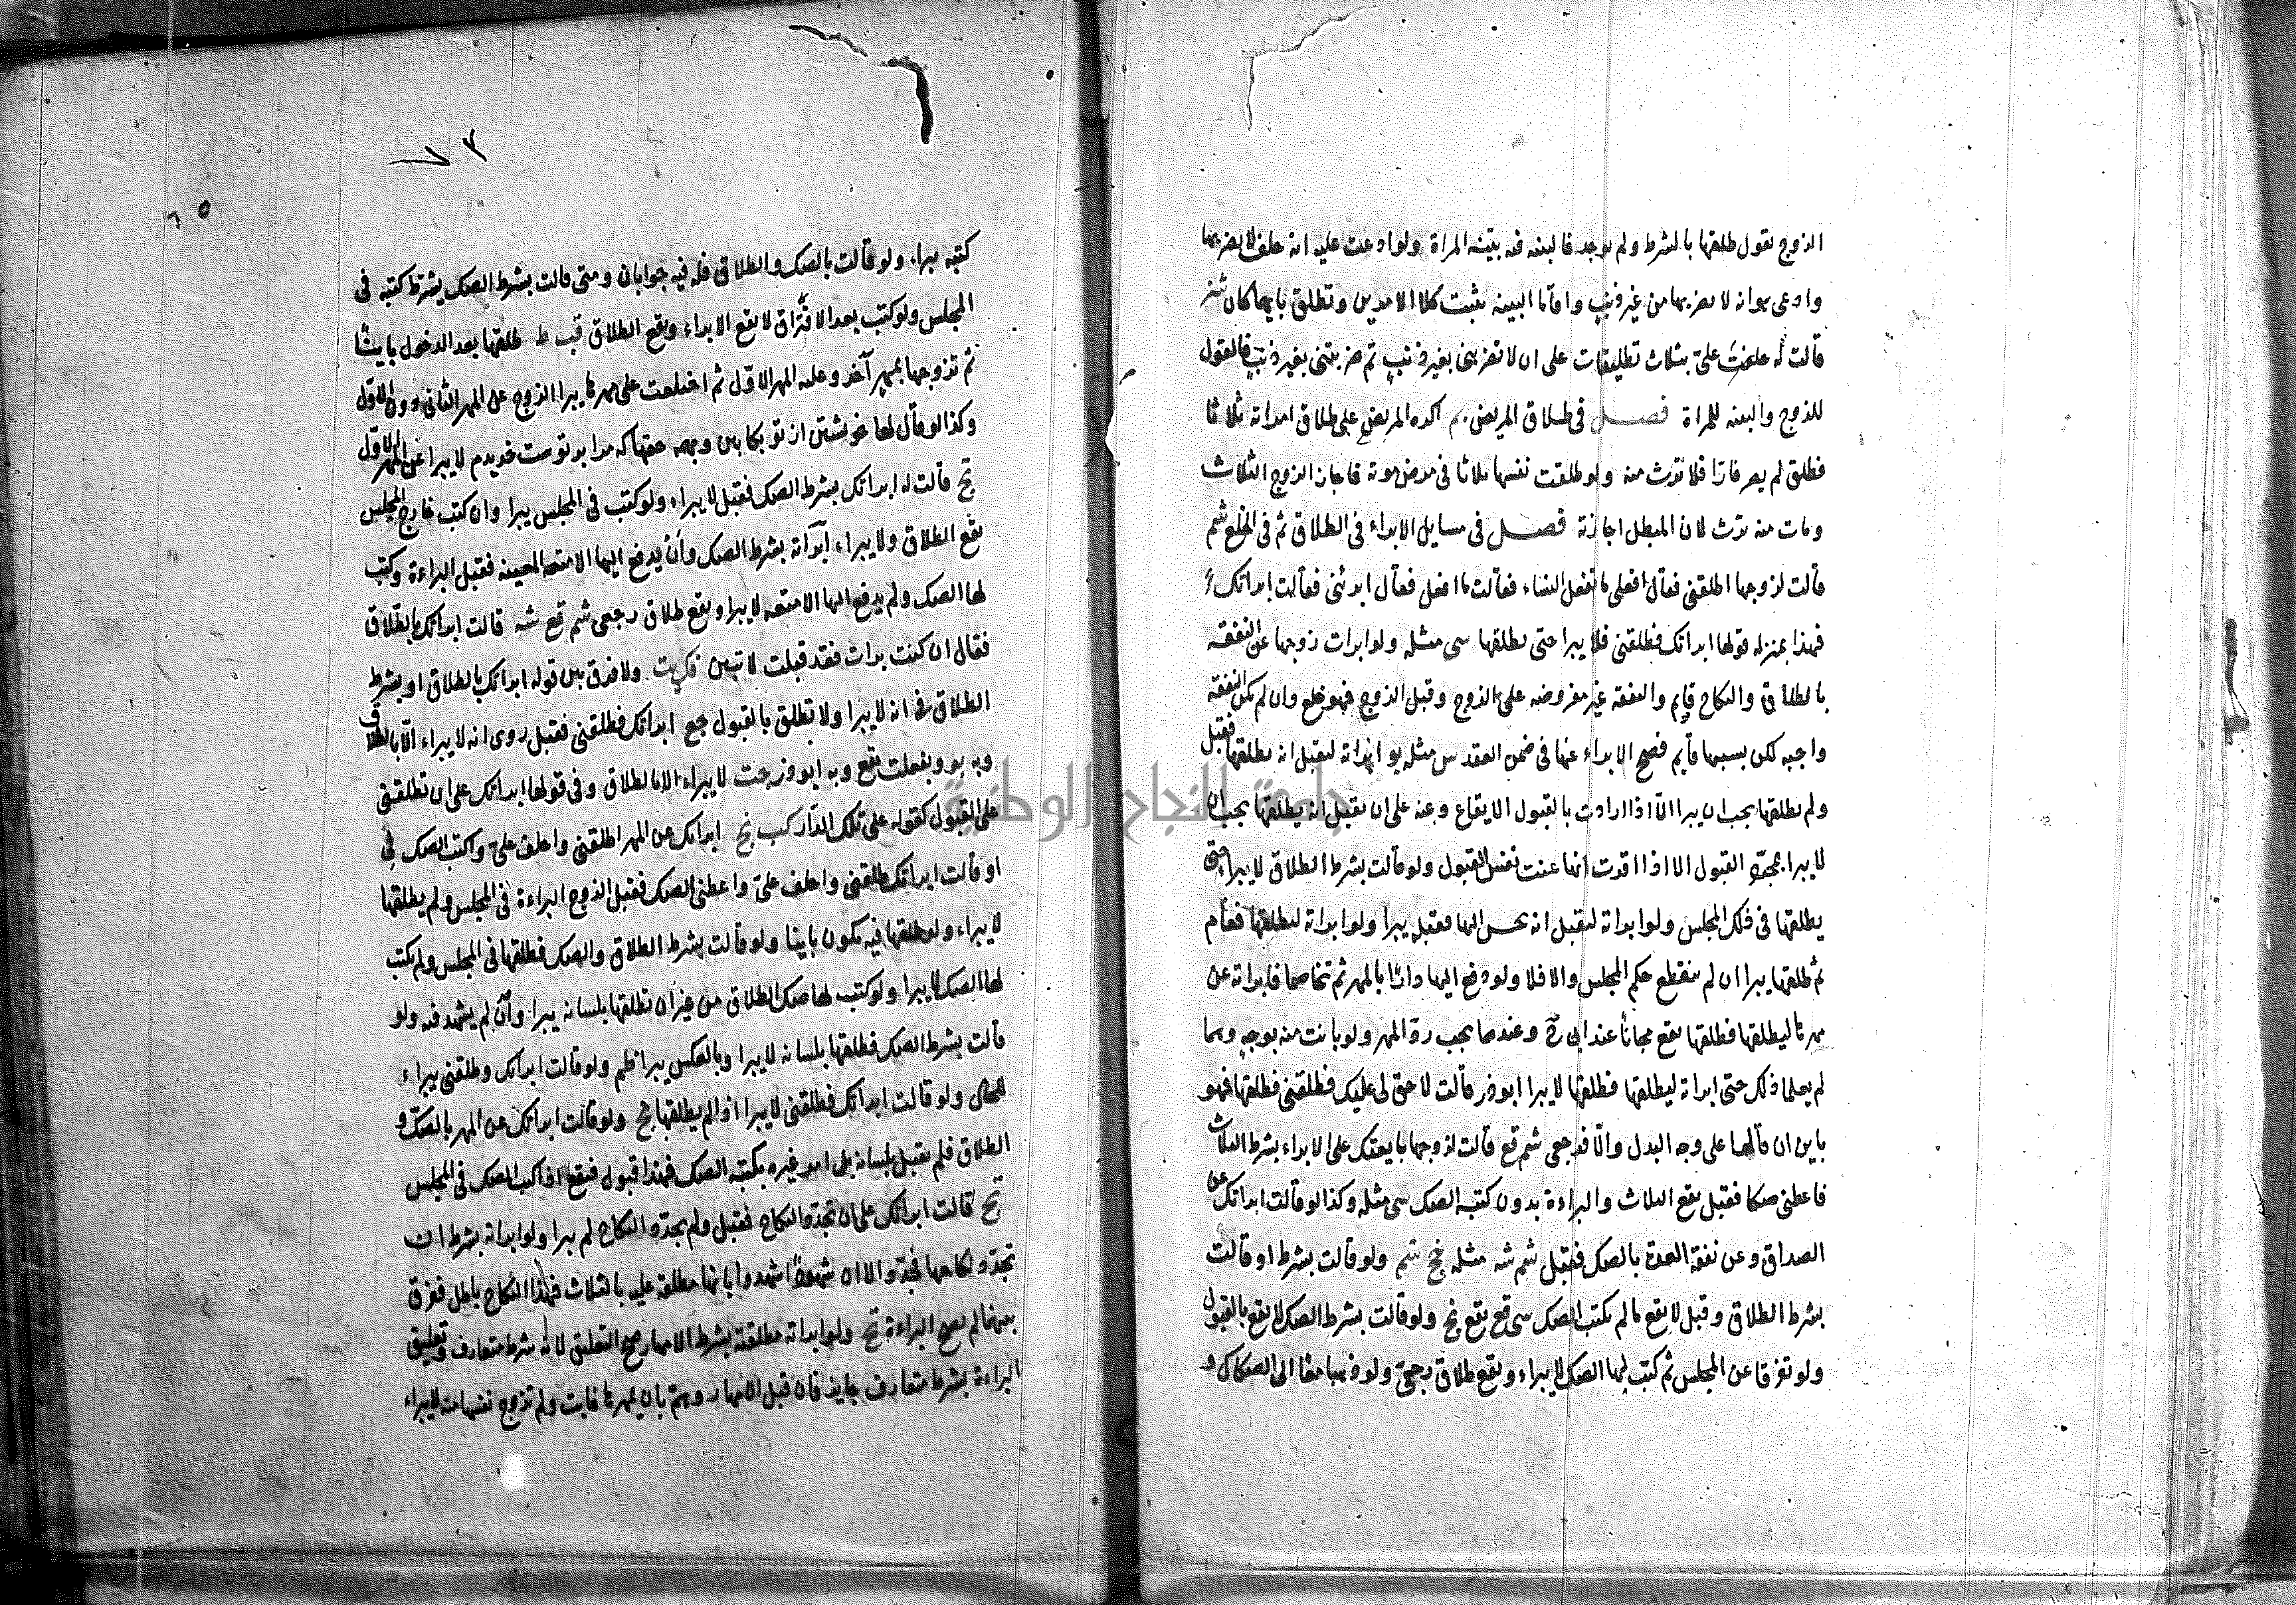 الزوج يقول طلقها بالشرط ولم يوجد فالبينه فيه بينه المراة ولو ادعت عليه انه حلف لا يضربها
وادعى هو انه لا يضربها من غير ذنب واقاما البينه يثبت كلا الامرين وتطلق بايهما كان شنز
قالت له حلفت علي بثلاث تطليقات على ان لا تضربني بغير ذنب ثم ضربتني بغير ذنب فالقول
للزوج والبينه للمراة فصل في طلاق المريض اكره المريض على طلاق امراته ثلاثا
فطلق لم يصر فارا فلا ترث منه ولو طلقت نفسها ثلاثا في مرض موته فاجاز الزوج الثلاث
ومات منه ترث لان المبطل اجازته فصل في مسايل الابراء في الطلاق ثم في الخلع شم
قالت لزوجها اطلقني فقال افعلي ما تفعل النساء فقالت ما افعل فقال ابرئني فقالت ابراتك
فهذا بمنزله قولها ابراتك فطلقني فلا يبرا حتى يطلقها سي مثله ولو ابرات زوجها عن النفقه
بالطلاق والنكاح قايم والنفقه غير مفروضه على الزوج وقبل الزوج فهو خلع وان لم تكن النفقه
واجبه لكن بسببها قايم فصح الابراء عنها في ضمن العقد س مثله بو ابراته ليقبل انه يطلقها فقبل
ولم يطلقها يجب ان يبرا الا اذا ارادت بالقبول الايقاع وعنه على ان يقبل انه يطلقها يجب ان
لا يبرا بمجرد القبول الا اذا اقرت انها عنت نفس القبول ولو قالت بشرط الطلاق لا يبراء حتى
يطلقها في ذلك المجلس ولو ابراته ليقبل انه يحسن اليها فقبل يبرا ولو ابراته ليطلقها فقام
ثم طلقها يبرا ان لم ينقطع حكم المجلس والا فلا ولو دفع اليها دارا بالمهر ثم تخاصما فابراته عن
مهرها ليطلقها فطلقها يقع مجانا عند ابي رح وعندهما يجب رد المهر ولو بانت منه بوجه وهما
لم يعلما ذلك حتى ابراته ليطلقها فطلقها لا يبرا ابو ذر قالت لا حق لي عليك فطلقني فطلقها فهو
باين ان قالها على وجه البدل والا فرجعي شم قع قالت لزوجها بايعتك على الابراء بشرط الثلاث
فاعطني صكا فقبل يقع الثلاث والبراءة بدون كتبه الصك سي مثله وكذا لو قالت ابراتك عن
الصداق وعن نفقه العدة بالصك فقبل شم شه مثله نج شم ولو قالت بشرط او قالت
بشرط الطلاق وقبل لا يقع ما لم يكتب الصك سي قع يقع نج ولو قالت بشرط الصك لا يقع بالقبول
ولو تفرقا عن المجلس ثم كتب لها الصك لا يبراء ويقع طلاق رجعي ولو ذهبا معا الى الصكاك و
٧٣
٦٥
كتبه يبراء ولو قالت بالصك والطلاق فله فيه جوابان ومتى قالت بشرط الصك يشترط كتبه في
المجلس ولو كتب بعد الافتراق لا يقع الابراء ويقع الطلاق قب ط طلقها بعد الدخول باينا
ثم تزوجها بمهر آخر وعليه المهر الاول ثم اختلعت على مهرها يبرا الزوج عن المهر الثاني دون الاول
وكذا لو قال لها خويشتن از تو بكابين وبهمه حقها كه مرا بر توست خريدم لا يبرا عن المهر الاول
نج قالت له ابراتك بشرط الصك فقبل لا يبراء ولو كتب في المجلس يبرا وان كتب خارج المجلس
يقع الطلاق ولا يبراء ابراته بشرط الصك وأن يدفع اليها الامتعه المعينه فقبل البراءة وكتب
لها الصك ولم يدفع اليها الامتعه لا يبرا ويقع طلاق رجعي شم قع شه قالت ابراتك بالطلاق
فقال ان كنت برات فقد قبلت لا تبين ولا فرق بين قوله ابراتك بالطلاق او بشرط
الطلاق في انه لا يبرا ولا تطلق بالقبول جع ابراتك فطلقني فقبل روى انه لا يبراء الا بالطلاق
وبه بو وبفعلت يقع وبه ابو ذر جت لا يبراء الا بالطلاق وفي قولها ابراتك على ان تطلقني
على القبول كقوله على تلك الدار كب نج ابراتك عن المهر اطلقني واحلف علي واكتب الصك لي
او قالت ابراتك طلقني واحلف علي واعطني الصك فقبل الزوج البراءة في المجلس ولم يطلقها
لا يبراء ولو طلقها فيه يكون باينا ولو قالت بشرط الطلاق والصك فطلقها في المجلس ولم يكتب
لها الصك لا يبرا ولو كتب لها صك الطلاق من غير ان تطلقها بلسانه يبرا وان لم يشهد فيه ولو
قالت بشرط الصك فطلقها بلسانه لا يبرا وبالعكس يبرا ظم ولو قالت ابراتك وطلقني يبراء
للحال ولو قالت ابراتك فطلقني لا يبرا اذا لم يطلقها نج ولو قالت ابراتك عن المهر بالصك و
الطلاق فلم يقبل بلسانه بل امر غيره بكتبه الصك فهذا قبول فيقع اذا كتب الصك في المجلس
نج قالت ابراتك على ان تجدد النكاح فقبل ولم يجدد النكاح لم يبرا ولو ابراته بشرط ان
تجدد نكاحها فجدد الا ان شهودا شهدوا بانها مطلقه عليه بالثلاث فهذا النكاح باطل ففرق
بينهما لم يصح البراءة نج ولو ابراته مطلقة بشرط الامهار صح التعليق لانه شرط متعارف وتعليق
البراءة بشرط متعارف جايز فان قبل الامهار وهم بان يمهرها فابت ولم تزوج نفسها منه لا يبراء